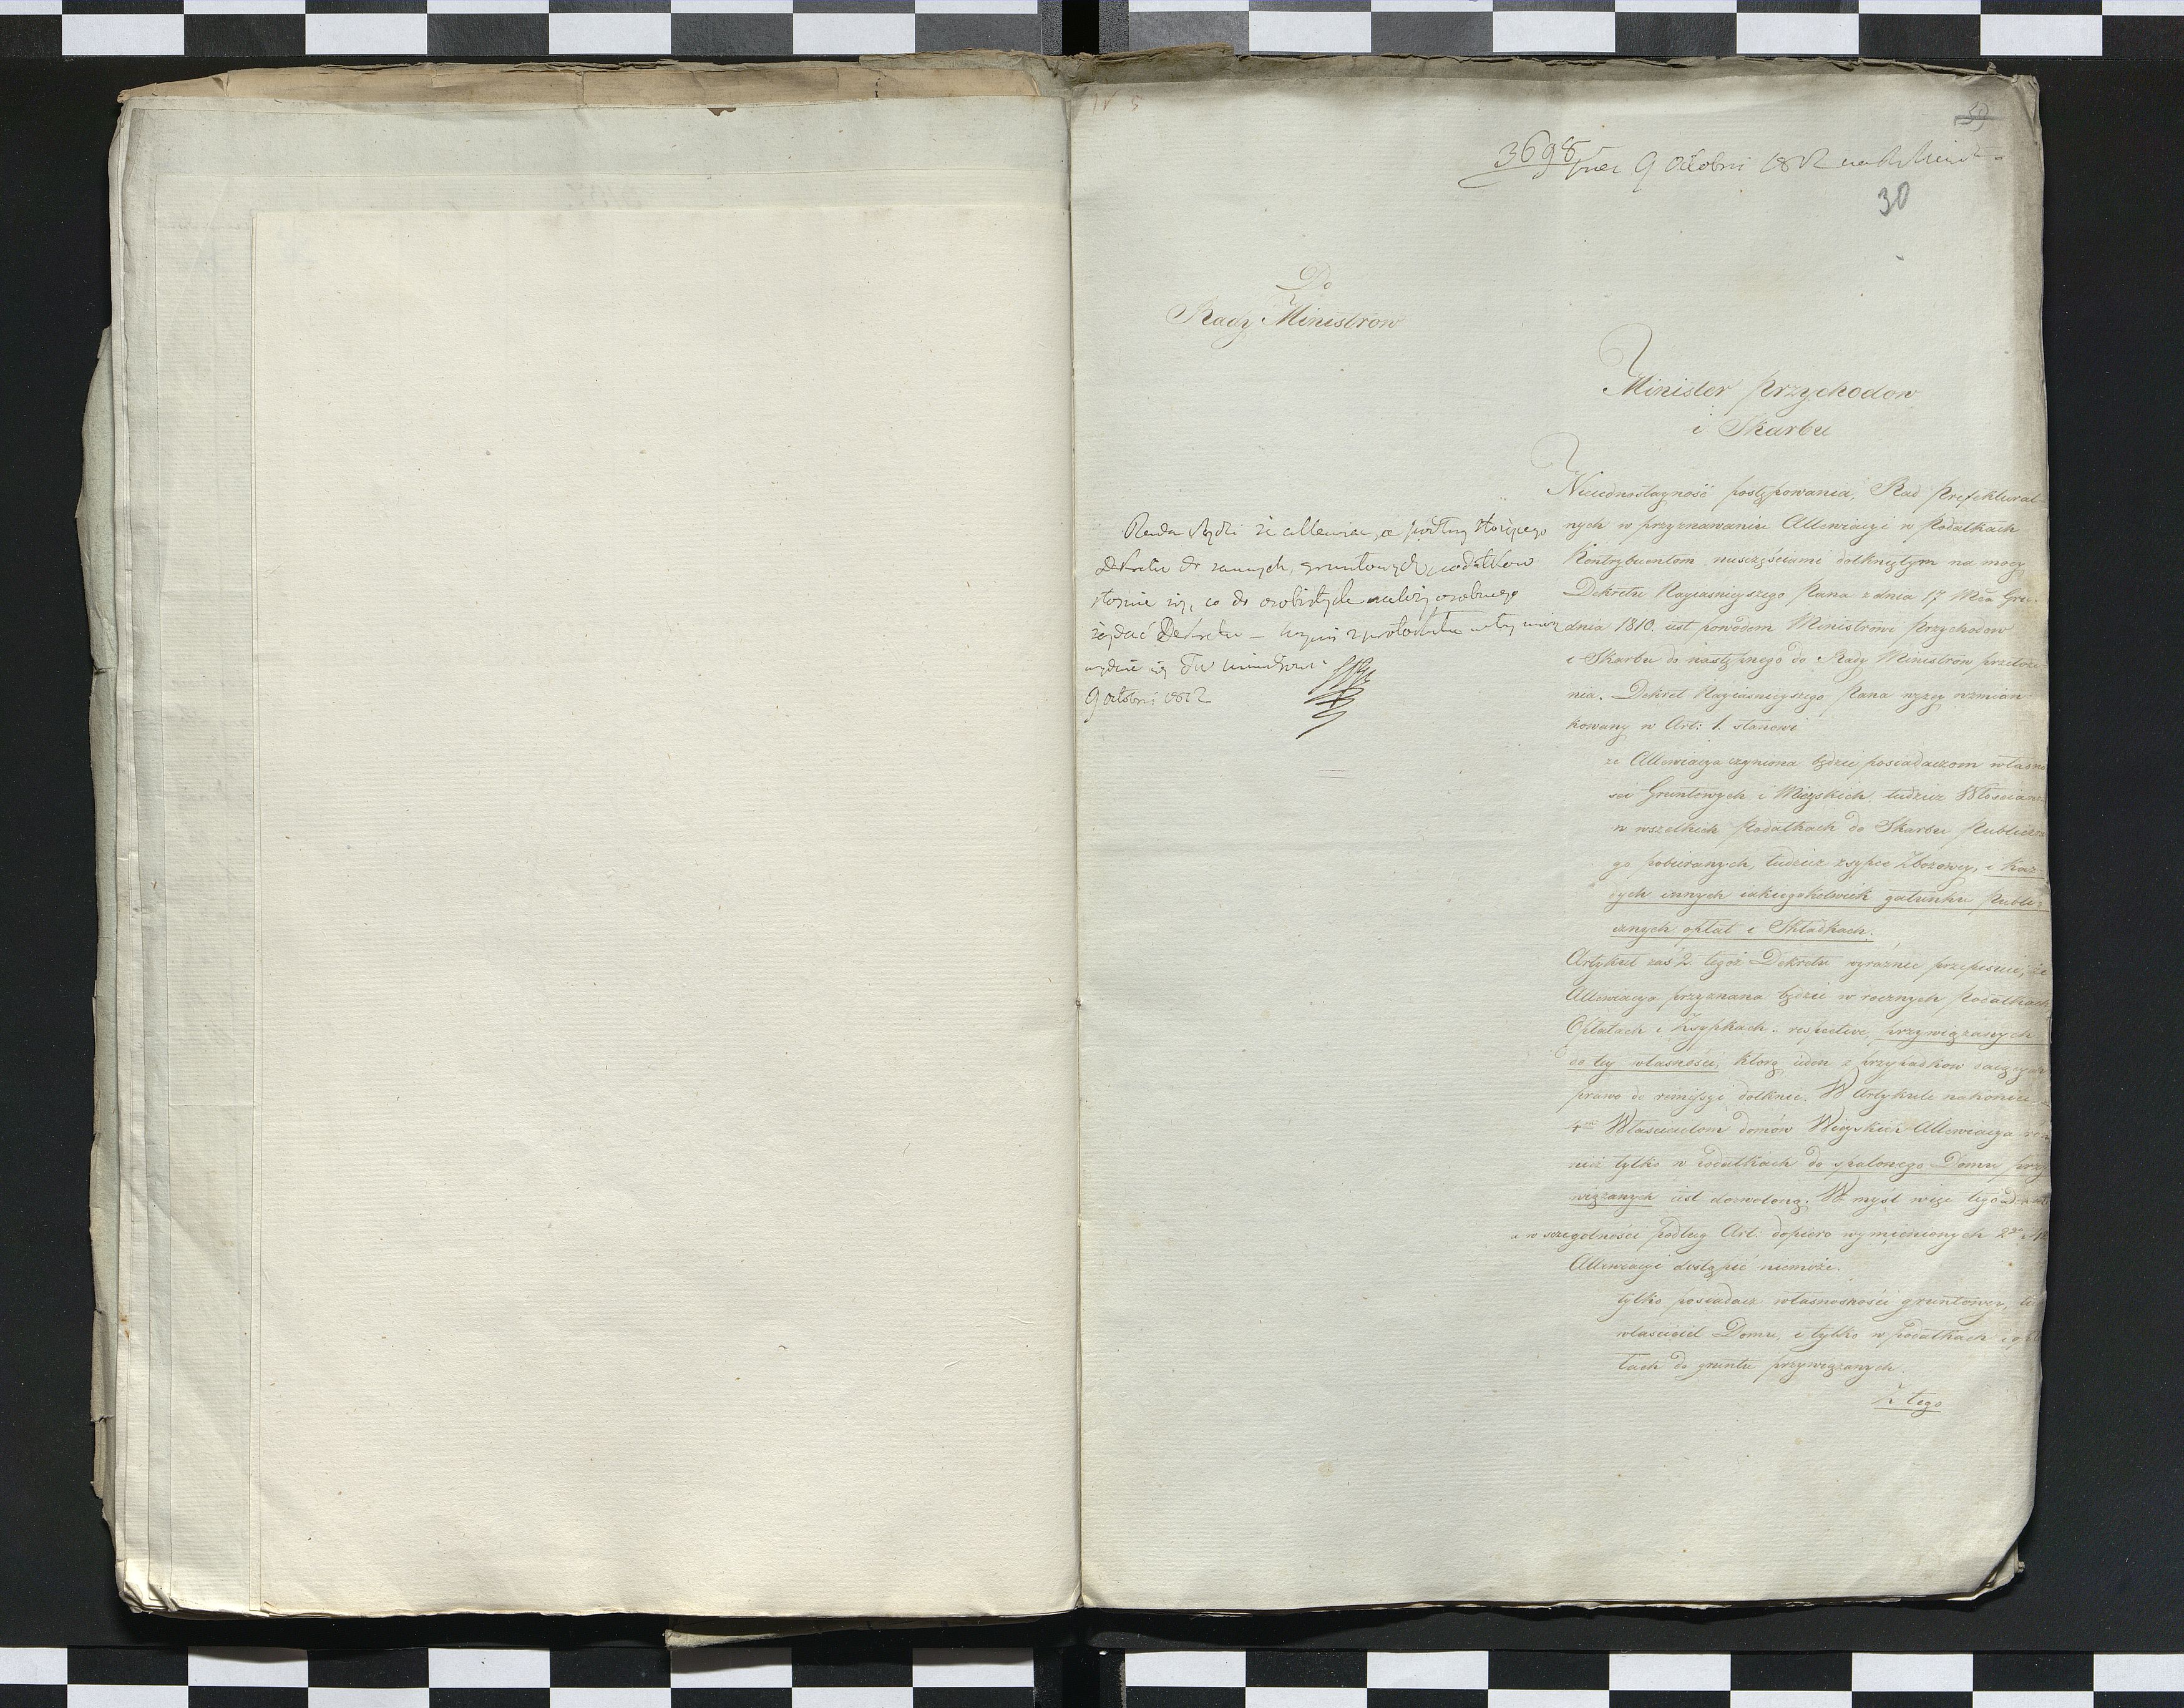 3698 9 Octobri 1812
30
Do
Rady Ministrow
Minister Przychodow
i Skarbu
Nieiednostayność postępowania, Rad Prefektural-
nych w przyznawaniu Allewiacyi w Podatkach
Kontrybuentom nieszczęściami dotkniętym na mocy
Dekretu Nayiasnieyszego Pana z dnia 17 Mca Gru-
dnia 1810. iest powodem Ministrowi Przychodow
i Skarbu do następnego do Rady Ministrow przełoże-
nia. Dekret Nayiasnieyszego Pana wyżey wzmian-
kowany w Art: 1. stanowi
że Allewiacya czyniona będzie posiadaczom własno
ści Gruntowych i Mieyskich tudzież Włościanom
w wszelkich Podatkach do Skarbu Publiczne
go pobieranych, tudzież zsypce Zbozowey, i
innych iakiegokolwiek gatunku Publi-
cznych opłat i Składkach.
Artykuł zaś 2. tegoż Dekretu wyraźnie przepisuie, że
Allewiacya przyznana będzie w rocznych Podatkach
Opłatach i Zsypkach respective, przywiązanych
do tey własności, ktorą ieden z przypadkow
prawo do remissyi dotknie. W Artykule nakoniec
4m Właścicielom domów Allewiacya
nież tylko w podatkach do spalonego Domu przy
wiązanych iest dozwoloną. W myśl więc tego
a w szczegolności podług Art: dopiero wymienionych 2go
Allewiacyi dostąpić niemoże.
tylko posiadacz własności gruntowey,
właściciel Domu, i tylko w podatkach i opła
tach do gruntu przywiązanych.
Z tego
Rada sądzi że allewiacya podług
Dekretu do samych, gruntowych podatkow
stosuie się, co do osobistych należy osobnego
żądać Dekretu –
9 Octobri 1812